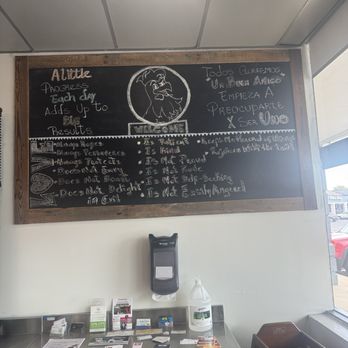 A Little
Progress
Each day
Adds Up to
Big
Results
WELCOME
Todos Queremos
Un Buen Amigo
Empieza A
Preocuparte
X Ser Uno
Always Hopes
Always Perseveres
Always Protects
Does Not Envy
Does Not Boast
Does Not Delight
in Evil
Is Patient
Is Kind
Is Not Proud
Is Not Rude
Is Not Self-Seeking
Is Not Easily Angered
Keeps No Record of Wrongs